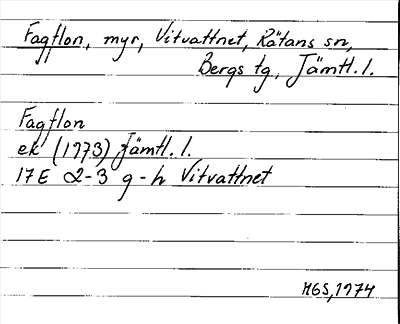 Fagflon, myr, Vitvattnet, Rätans sn,
Bergs tg, Jämtl. l.
Fagflon
ek (1973) Jämtl. l.
17E 2-3 g-h Vitvattnet
MGS, 1974